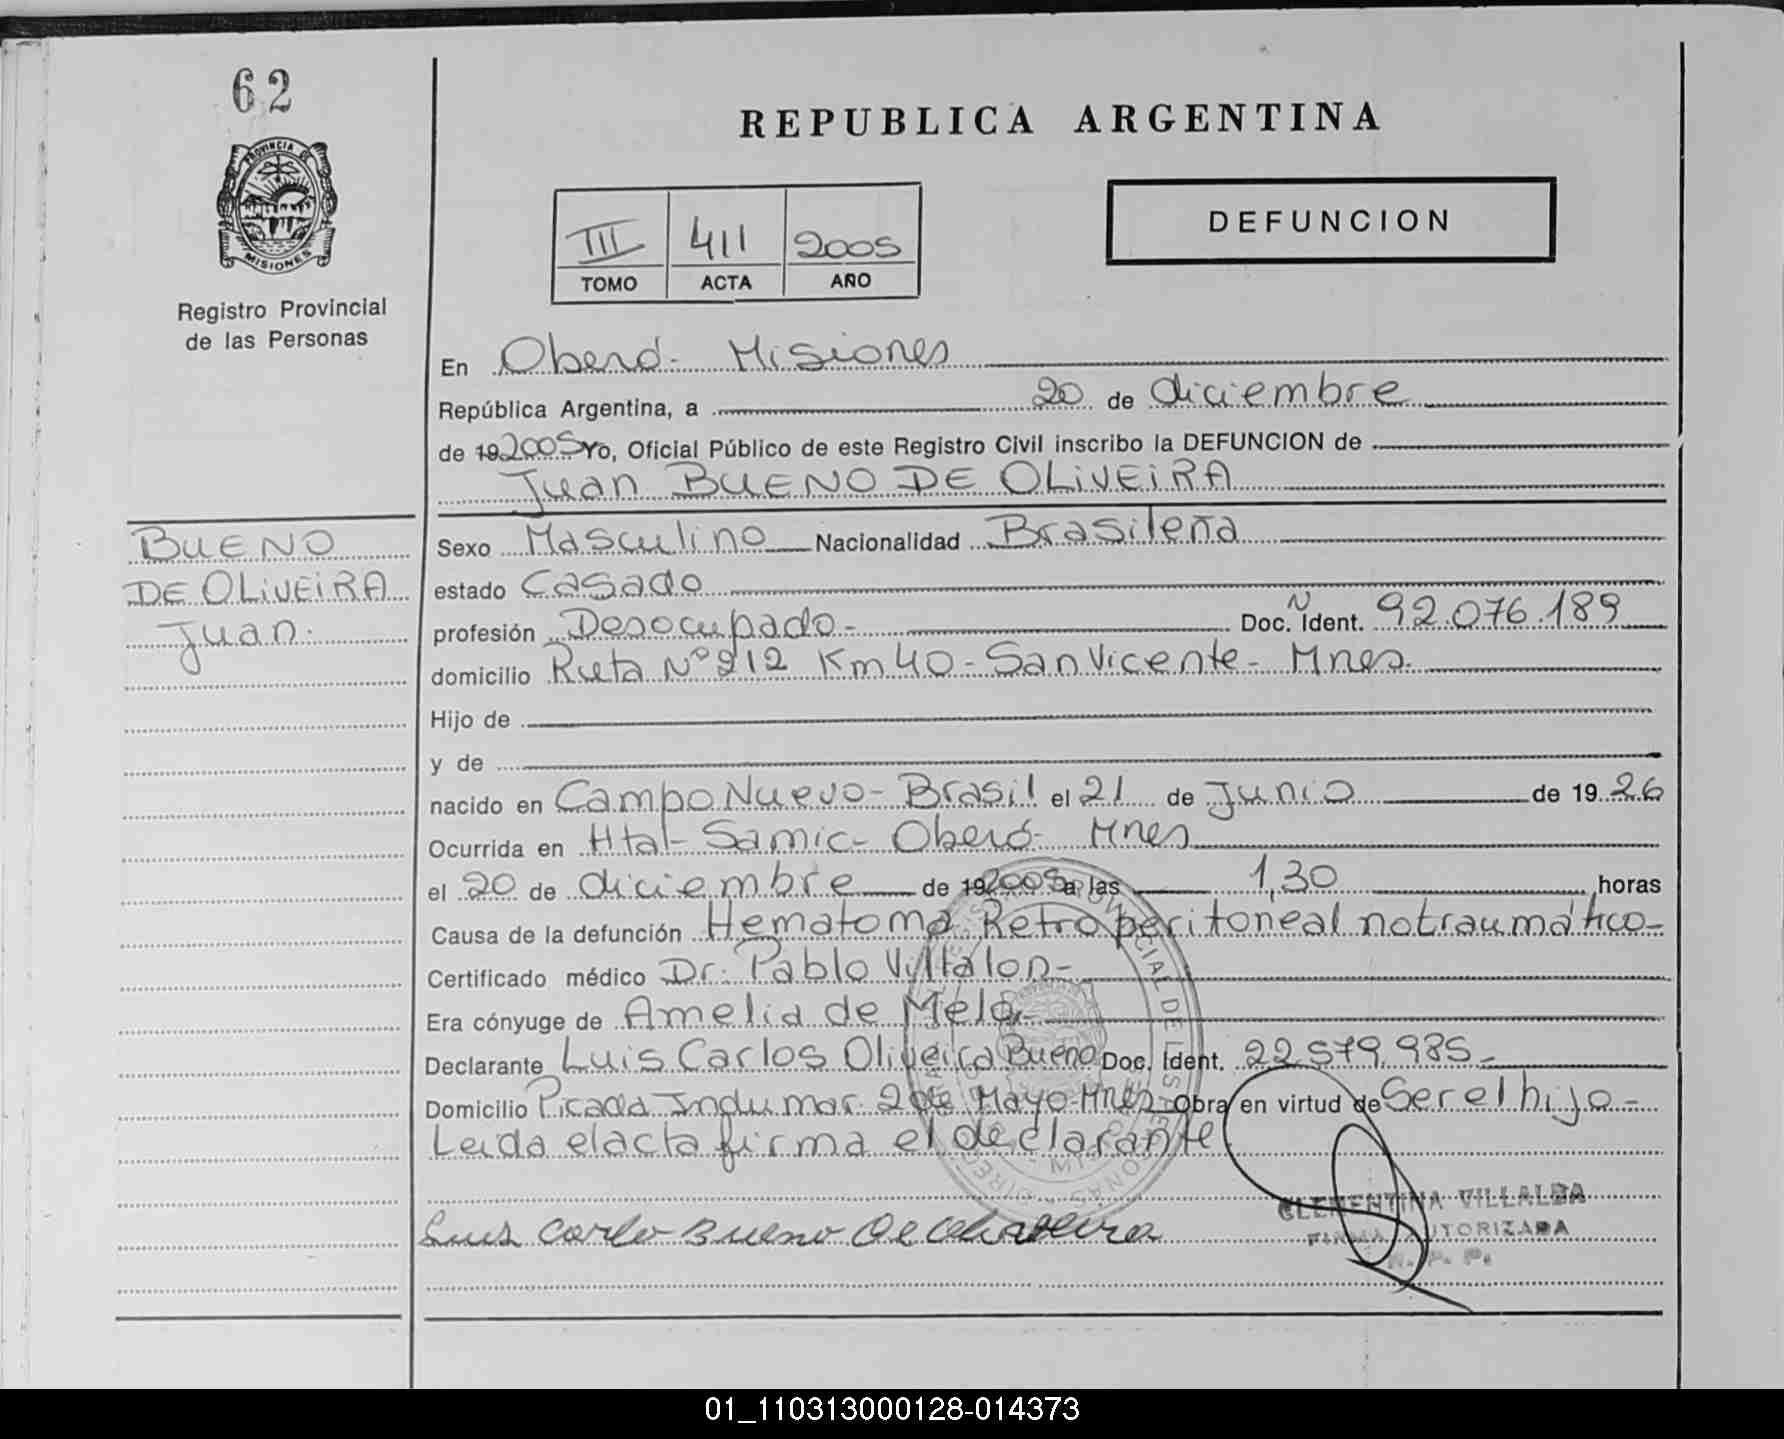 62
PROVINCIA DE
MISIONES
Registro Provincial
de las Personas
REPUBLICA ARGENTINA
III 411 2005
TOMO ACTA AÑO
DEFUNCION
En Oberá- Misiones
República Argentina, a 20 de diciembre
de 19 2005 Yo, Oficial Público de este Registro Civil inscribo la DEFUNCION de
Juan BUENO DE OLIVEIRA
BUENO
DE OLIVEIRA
Juan.
Sexo Masculino Nacionalidad Brasileña
estado Casado
profesión Desocupado- Doc. Ñ Ident. 92.076.189
domicilio Ruta Nº 212 Km 40- San Vicente- Mnes.
Hijo de
y de
nacido en Campo Nuevo- Brasil el 21 de Junio de 19 26
Ocurrida en Htal- Samic- Oberá- Mnes
el 20 de diciembre de 19 2005 a las 1,30 horas
Causa de la defunción Hematoma Retroperitoneal no traumático-
Certificado médico Dr. Pablo Villalon-
Era cónyuge de Amelia de Melo-
Declarante Luis Carlos Oliveira Bueno Doc. Ident. 22.579.985-
Domicilio Picada Indumar 2 de Mayo- Mnes- Obra en virtud de Ser el hijo-
Leida el acta firma el declarante
Luis Carlo Bueno De Oliveira
CLEMENTINA VILLALBA
FIRMA AUTORIZADA
R. P. P.
01_110313000128-014373